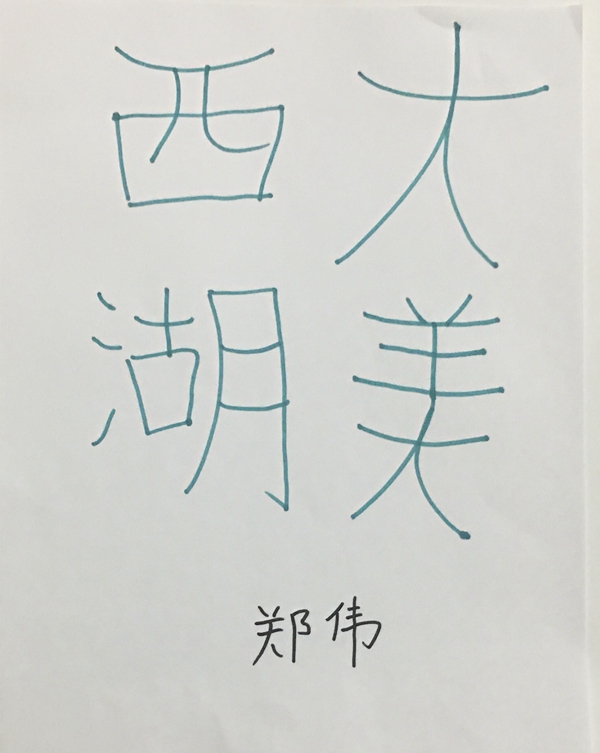 大美
西湖
郑伟